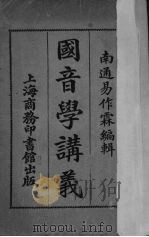 南通易作霖編輯
國音學講義
上海商務印書館出版
www.mtoou.info